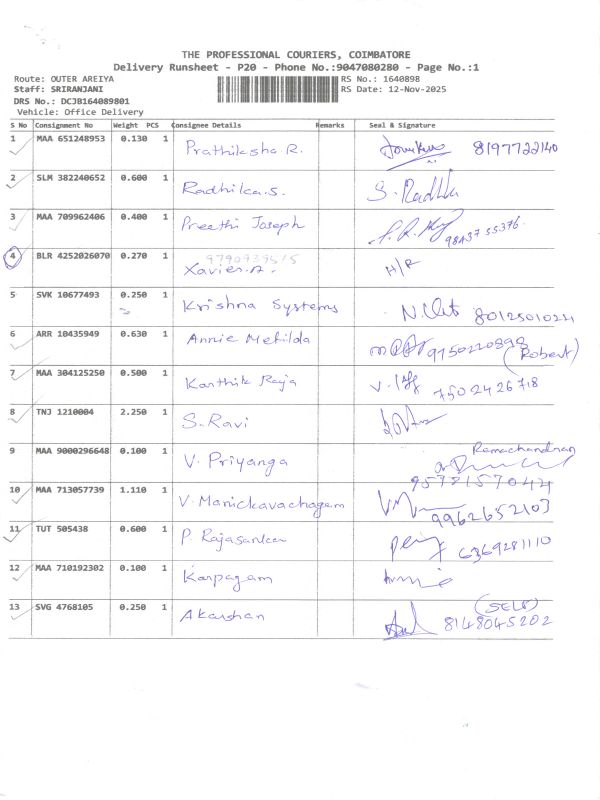 THE PROFESSIONAL COURIERS, COIMBATORE
Delivery Runsheet - P20 - Phone No.:9047080280 - Page No.:1
Route: OUTER AREIYA
RS No.: 1640898
Staff: SRIRANJANI
RS Date: 12-Nov-2025
DRS No.: DCJB164089801
Vehicle: Office Delivery
S No Consignment No Weight PCS Consignee Details Remarks Seal & Signature
1 MAA 651248953 0.130 1 Prathiksha R. 8197722140
2 SLM 382240652 0.600 1 Radhika.S. S. Radhika
3 MAA 709962406 0.400 1 Preethi Joseph 98437 55376
4 BLR 4252026070 0.270 1 9790939515
Xavier.A. H/R
5 SVK 10677493 0.250 1 Krishna Systems 8012501024
6 ARR 10435949 0.630 1 Annie Metilda 9750220898
(Robert)
7 MAA 304125250 0.500 1 Karthik Raja 7502426718
8 TNJ 1210004 2.250 1 S.Ravi
9 MAA 9000296648 0.100 1 V. Priyanga Ramachandran
9572157042
10 MAA 713057739 1.110 1 V. Manickavachagam 9962652103
11 TUT 505438 0.600 1 P. 6369281110
12 MAA 710192302 0.100 1 Karpagam
13 SVG 4768105 0.250 1 Akarshan (SELF)
8148045202